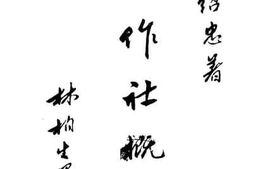 绍忠著
作社概
林柏生